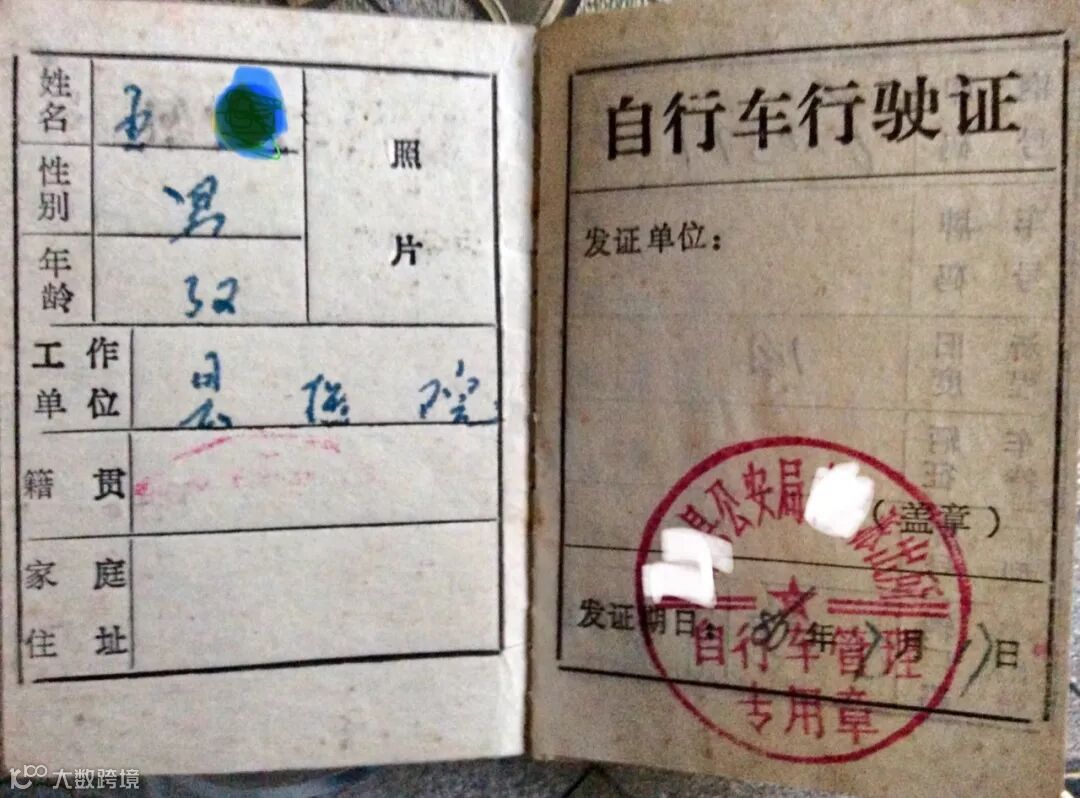 姓名 王
性别 男
年龄 32
照片
工作单位 县医院
籍贯
家庭住址
自行车行驶证
发证单位：
（盖章）
发证期日： 年 月 日
县公安局
自行车管理
专用章
大数跨境